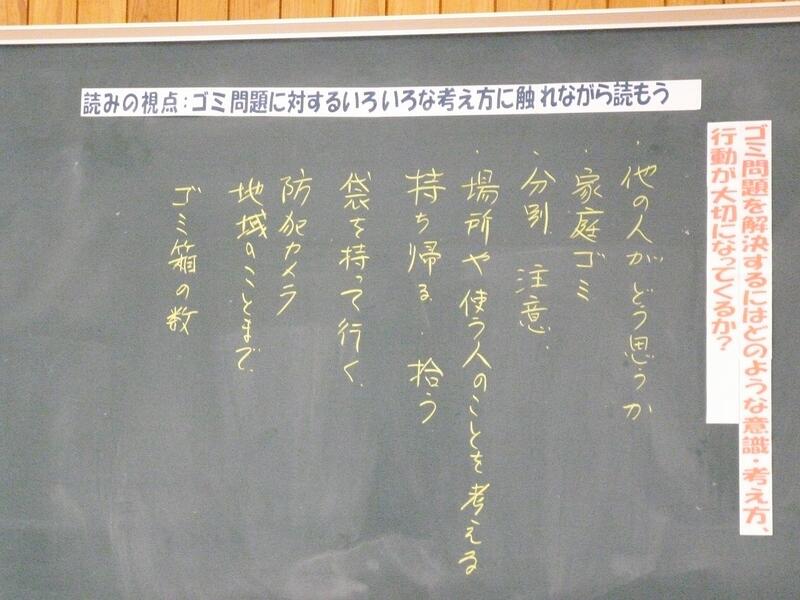 読みの視点：ゴミ問題に対するいろいろな考え方に触れながら読もう
ゴミ問題を解決するにはどのような意識・考え方、
行動が大切になってくるか？
・他の人がどう思うか
・家庭ゴミ
・分別 注意
・場所や使う人のことを考える
持ち帰る・拾う
袋を持って行く
防犯カメラ
地域のことまで
ゴミ箱の数